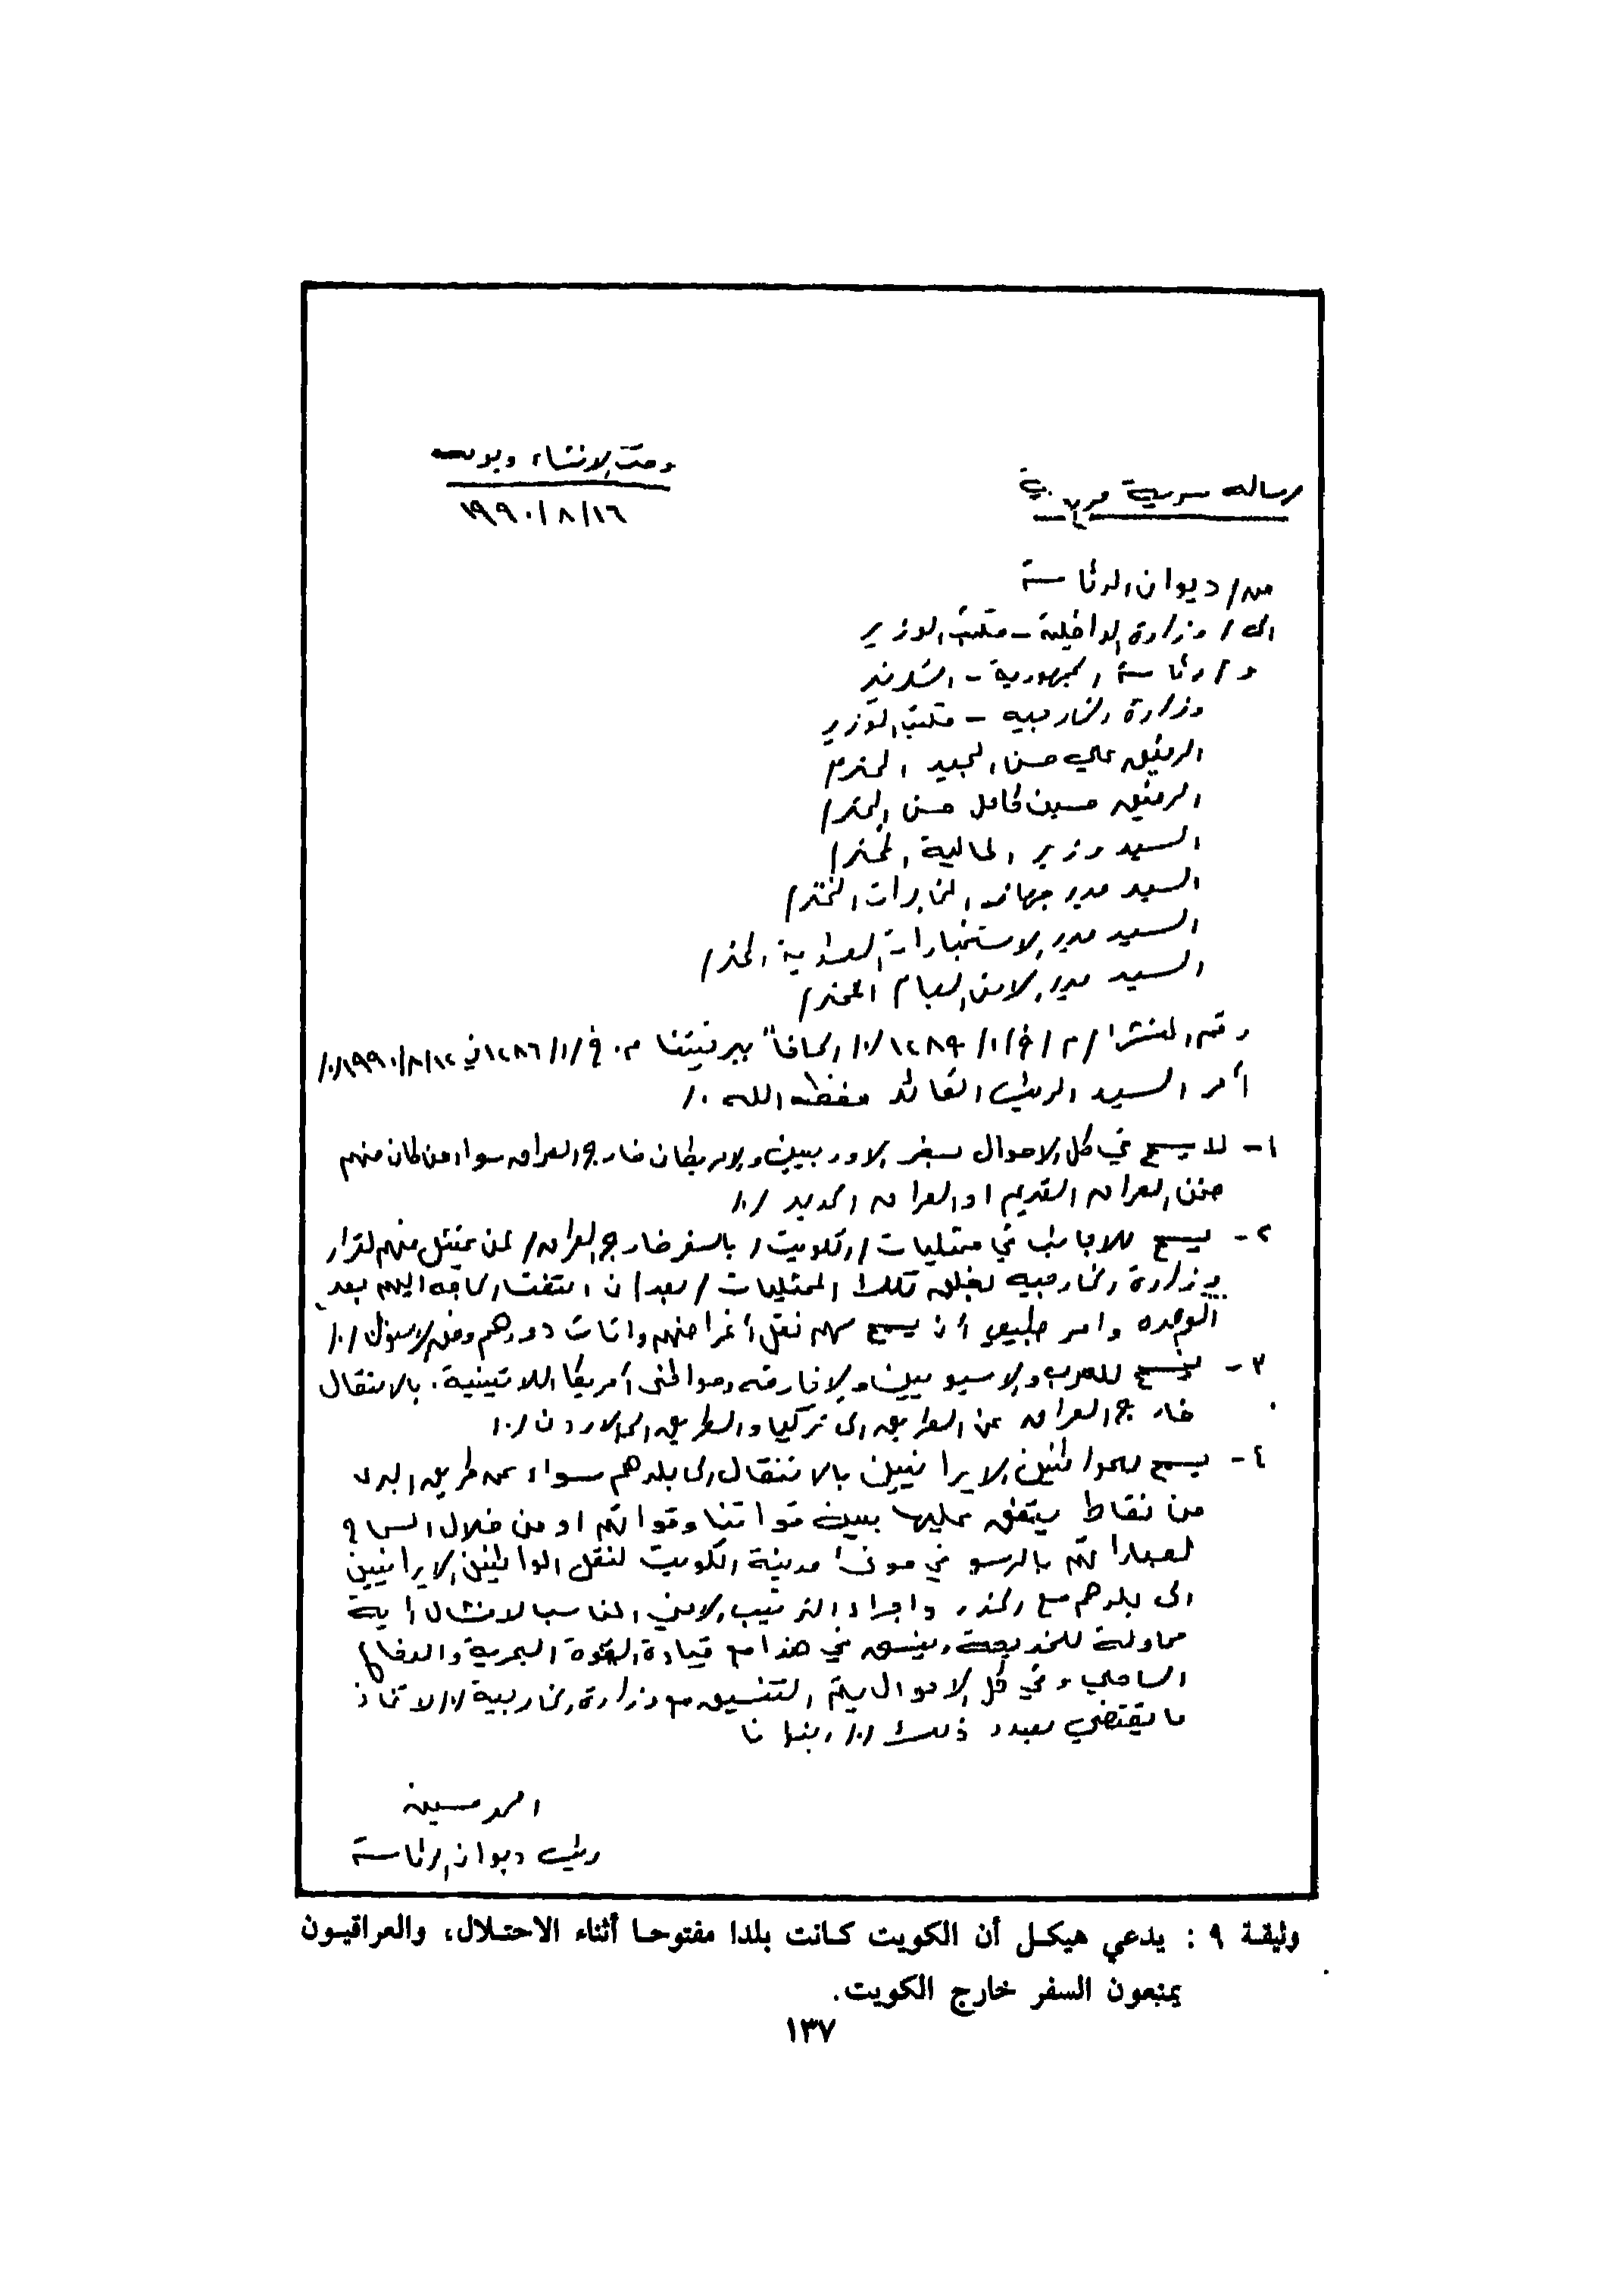 رساله سرية
وقت الانشاء
١٩٩٠/٨/١٦
من/ ديوان الرئاسة
الى/ وزارة الداخلية - مكتب الوزير
و/ رئاسة الجمهورية - السكرتير
وزارة الخارجيه - مكتب الوزير
الرفيق علي حسن المجيد المحترم
الرفيق حسين كامل حسن المحترم
السيد وزير المالية المحترم
السيد مدير جهاز المخابرات المحترم
السيد مدير الاستخبارات المحترم
السيد مدير الامن العام المحترم
الحاقاً ببرقيتنا في ١٩٩٠/٨/١٢
أمر السيد الرئيس القائد حفظه الله /.
١- لا يسمح في كل الاحوال بسفر الاوربيين والامريكان خارج العراق سواء من كان منهم
ضمن العراق القديم او العراق الجديد /.
٢- يسمح للاجانب في ممثليات / الكويت / بالسفر خارج العراق / لمن يمتثل منهم لقرار
وزارة الخارجيه بغلق تلك الممثليات / بعد ان انتفت الحاجه اليهم بعد
الوحده وامر طبيعي أن يسمح لهم نقل أغراضهم واثاث دورهم وفق الاصول /.
٣- يسمح للعرب والاسيويين والافارقه ومواطني أمريكا اللاتينية بالانتقال
خارج العراق عن الطريق الى تركيا والطريق الى الاردن /.
٤- يسمح للمواطنين الايرانيين بالانتقال الى بلدهم سواء عن طريق البر
من نقاط يتفق عليها بين قواتنا وقواتهم او من خلال السماح
لعباراتهم بالرسو في موانئ مدينة الكويت لنقل المواطنين الايرانيين
الى بلدهم مع الحذر واجراء الترتيب الامني المناسب لافشال أية
محاولة للخديعة وينسق في هذا مع قيادة القوة البحرية والدفاع
الساحلي وفي كل الاحوال يتم التنسيق مع وزارة الخارجية /. لاتخاذ
ما يقتضي بصدد ذلك /.
احمد حسين
رئيس ديوان الرئاسة
وثيقة ٩ : يدعي هيكل أن الكويت كانت بلدا مفتوحا أثناء الاحتلال، والعراقيون
يمنعون السفر خارج الكويت.
١٣٧